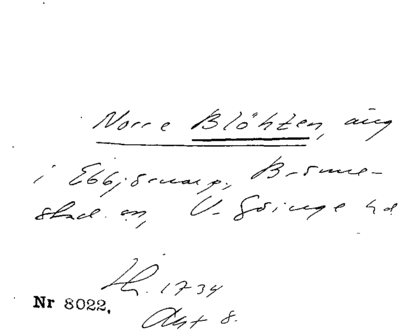 Norre Blöhten, äng
i Ebbjörnarp, Brönne-
stad sn, V. Göinge hd
Lh. 1734
Akt 8.
Nr 8022.